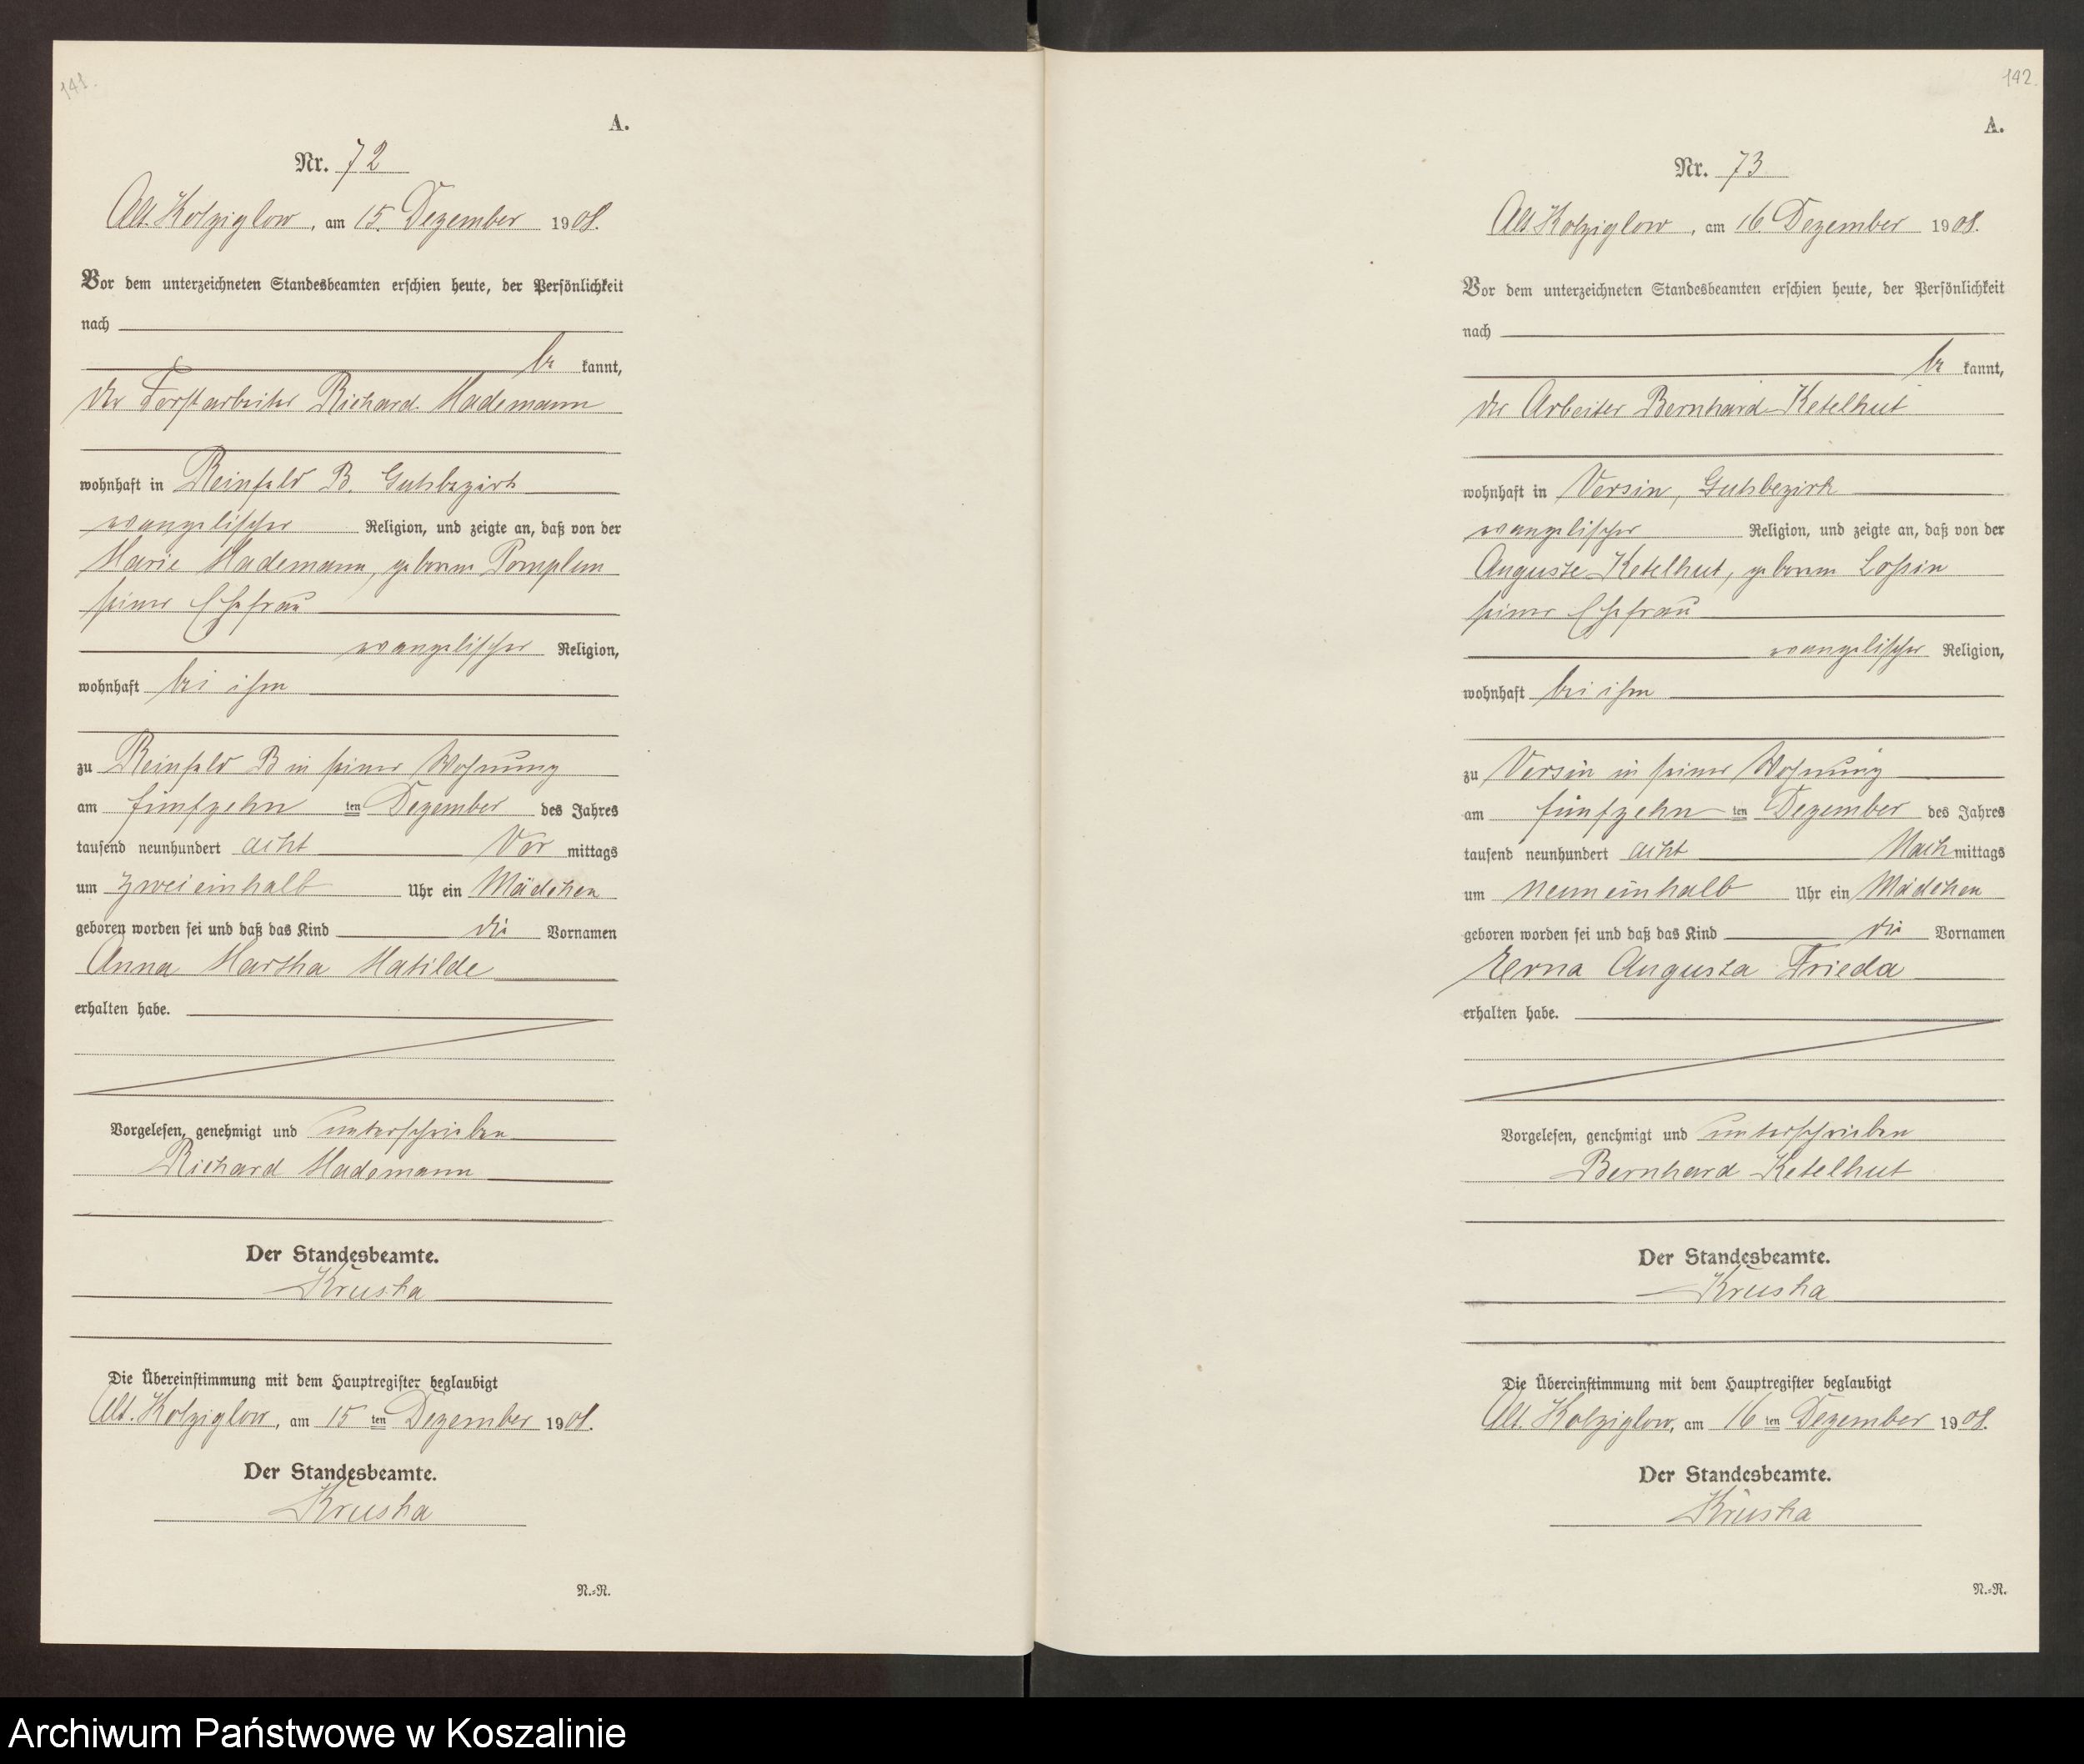 141.
A.
Nr. 72
Alt. Kolziglow, am 15. Dezember 1908.
Vor dem unterzeichneten Standesbeamten erschien heute, der Persönlichkeit
nach
be kannt,
der Forstarbeiter Richard Hademann
wohnhaft in Reinfeld B. Gutsbezirk
evangelischer Religion, und zeigte an, daß von der
Marie Hademann, geborene Pomplun
seiner Ehefrau
evangelischer Religion,
wohnhaft bei ihm
zu Reinfeld B in seiner Wohnung
am fünfzehn ten Dezember des Jahres
tausend neunhundert acht Vor mittags
um zweieinhalb Uhr ein Mädchen
geboren worden sei und daß das Kind die Vornamen
Anna Martha Matilde
erhalten habe.
Vorgelesen, genehmigt und unterschrieben
Richard Hademann
Der Standesbeamte.
Kruska
Die Übereinstimmung mit dem Hauptregister beglaubigt
Alt. Kolziglow, am 15 ten Dezember 1908.
Der Standesbeamte.
Kruska
N.=R.
142.
A.
Nr. 73
Alt Kolziglow, am 16. Dezember 1908.
Vor dem unterzeichneten Standesbeamten erschien heute, der Persönlichkeit
nach
be kannt,
der Arbeiter Bernhard Ketelhut
wohnhaft in Versin, Gutsbezirk
evangelischer Religion, und zeigte an, daß von der
Auguste Ketelhut, geborene Loßin
seiner Ehefrau
evangelischer Religion,
wohnhaft bei ihm
zu Versin in seiner Wohnung
am fünfzehn ten Dezember des Jahres
tausend neunhundert acht Nach mittags
um neuneinhalb Uhr ein Mädchen
geboren worden sei und daß das Kind die Vornamen
Erna Augusta Frieda
erhalten habe.
Vorgelesen, genehmigt und unterschrieben
Bernhard Ketelhut
Der Standesbeamte.
Kruska
Die Übereinstimmung mit dem Hauptregister beglaubigt
Alt. Kolziglow, am 16 ten Dezember 1908.
Der Standesbeamte.
Kruska
N.=R.
Archiwum Państwowe w Koszalinie